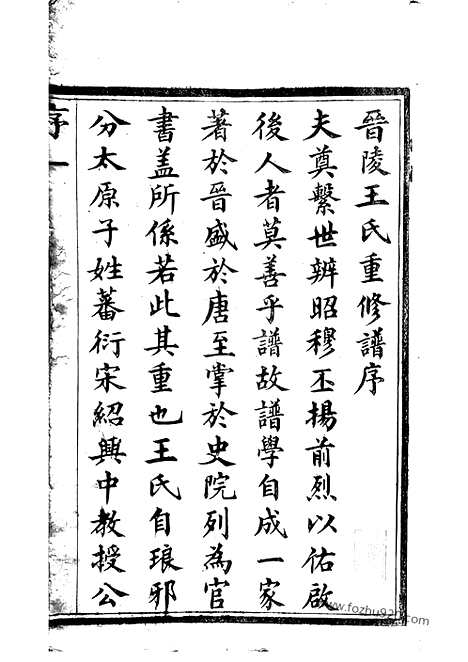 晉陵王氏重修譜序
夫奠繫世辨昭穆丕揚前烈以佑啟
後人者莫善乎譜故譜學自成一家
著於晉盛於唐至掌於史院列為官
書盖所係若此其重也王氏自琅邪
分太原子姓蕃衍宋紹興中教授公
序 一
www.fozhu920.com